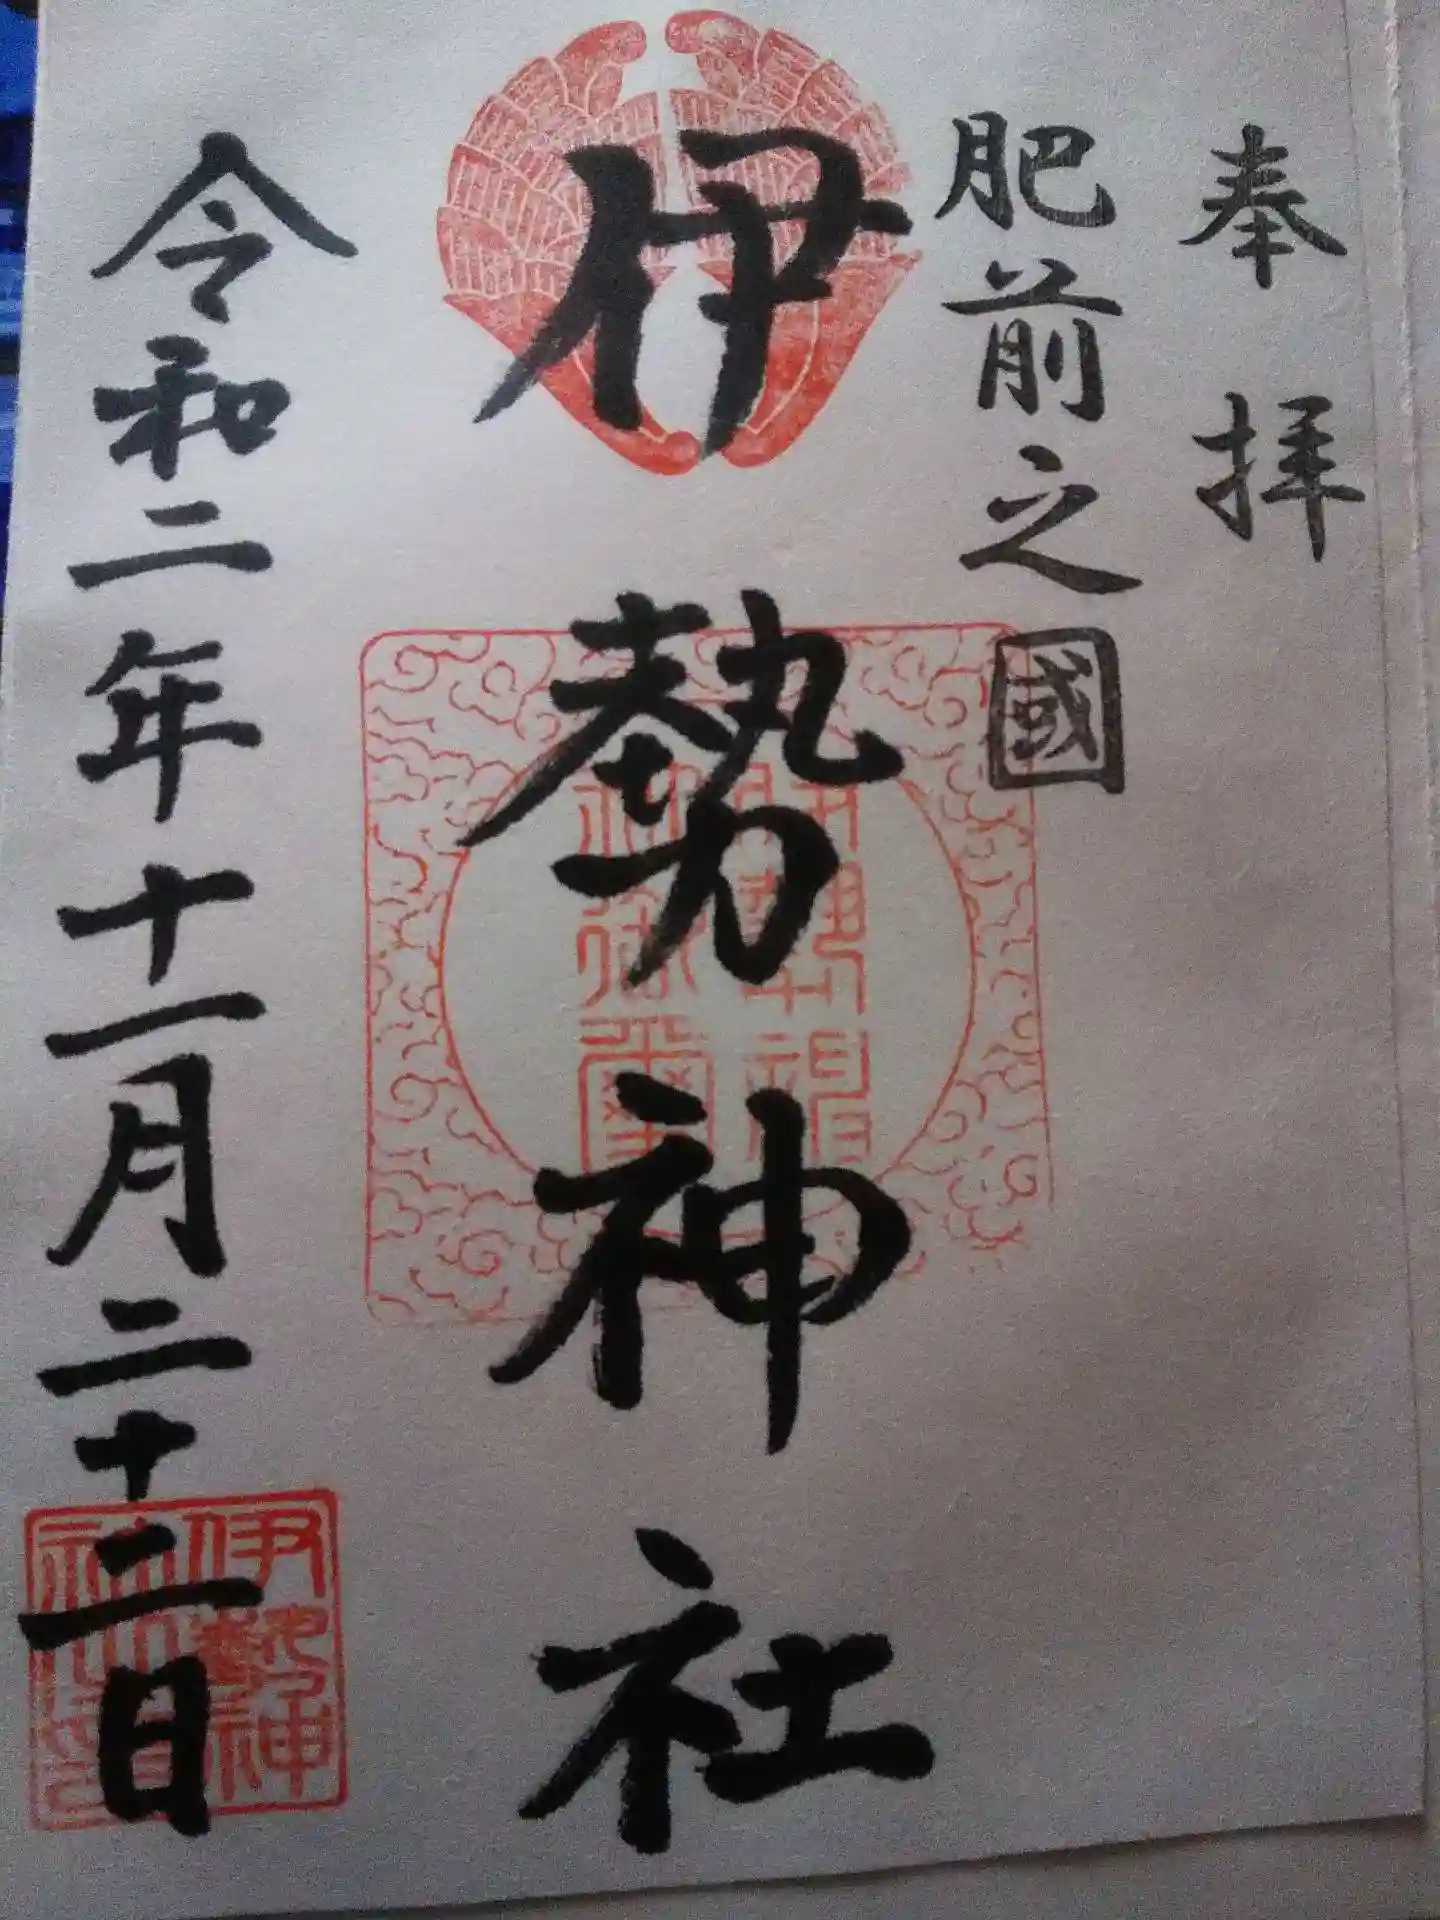 奉拝
肥前之國
伊勢神社
令和二年十一月二十二日
伊勢神